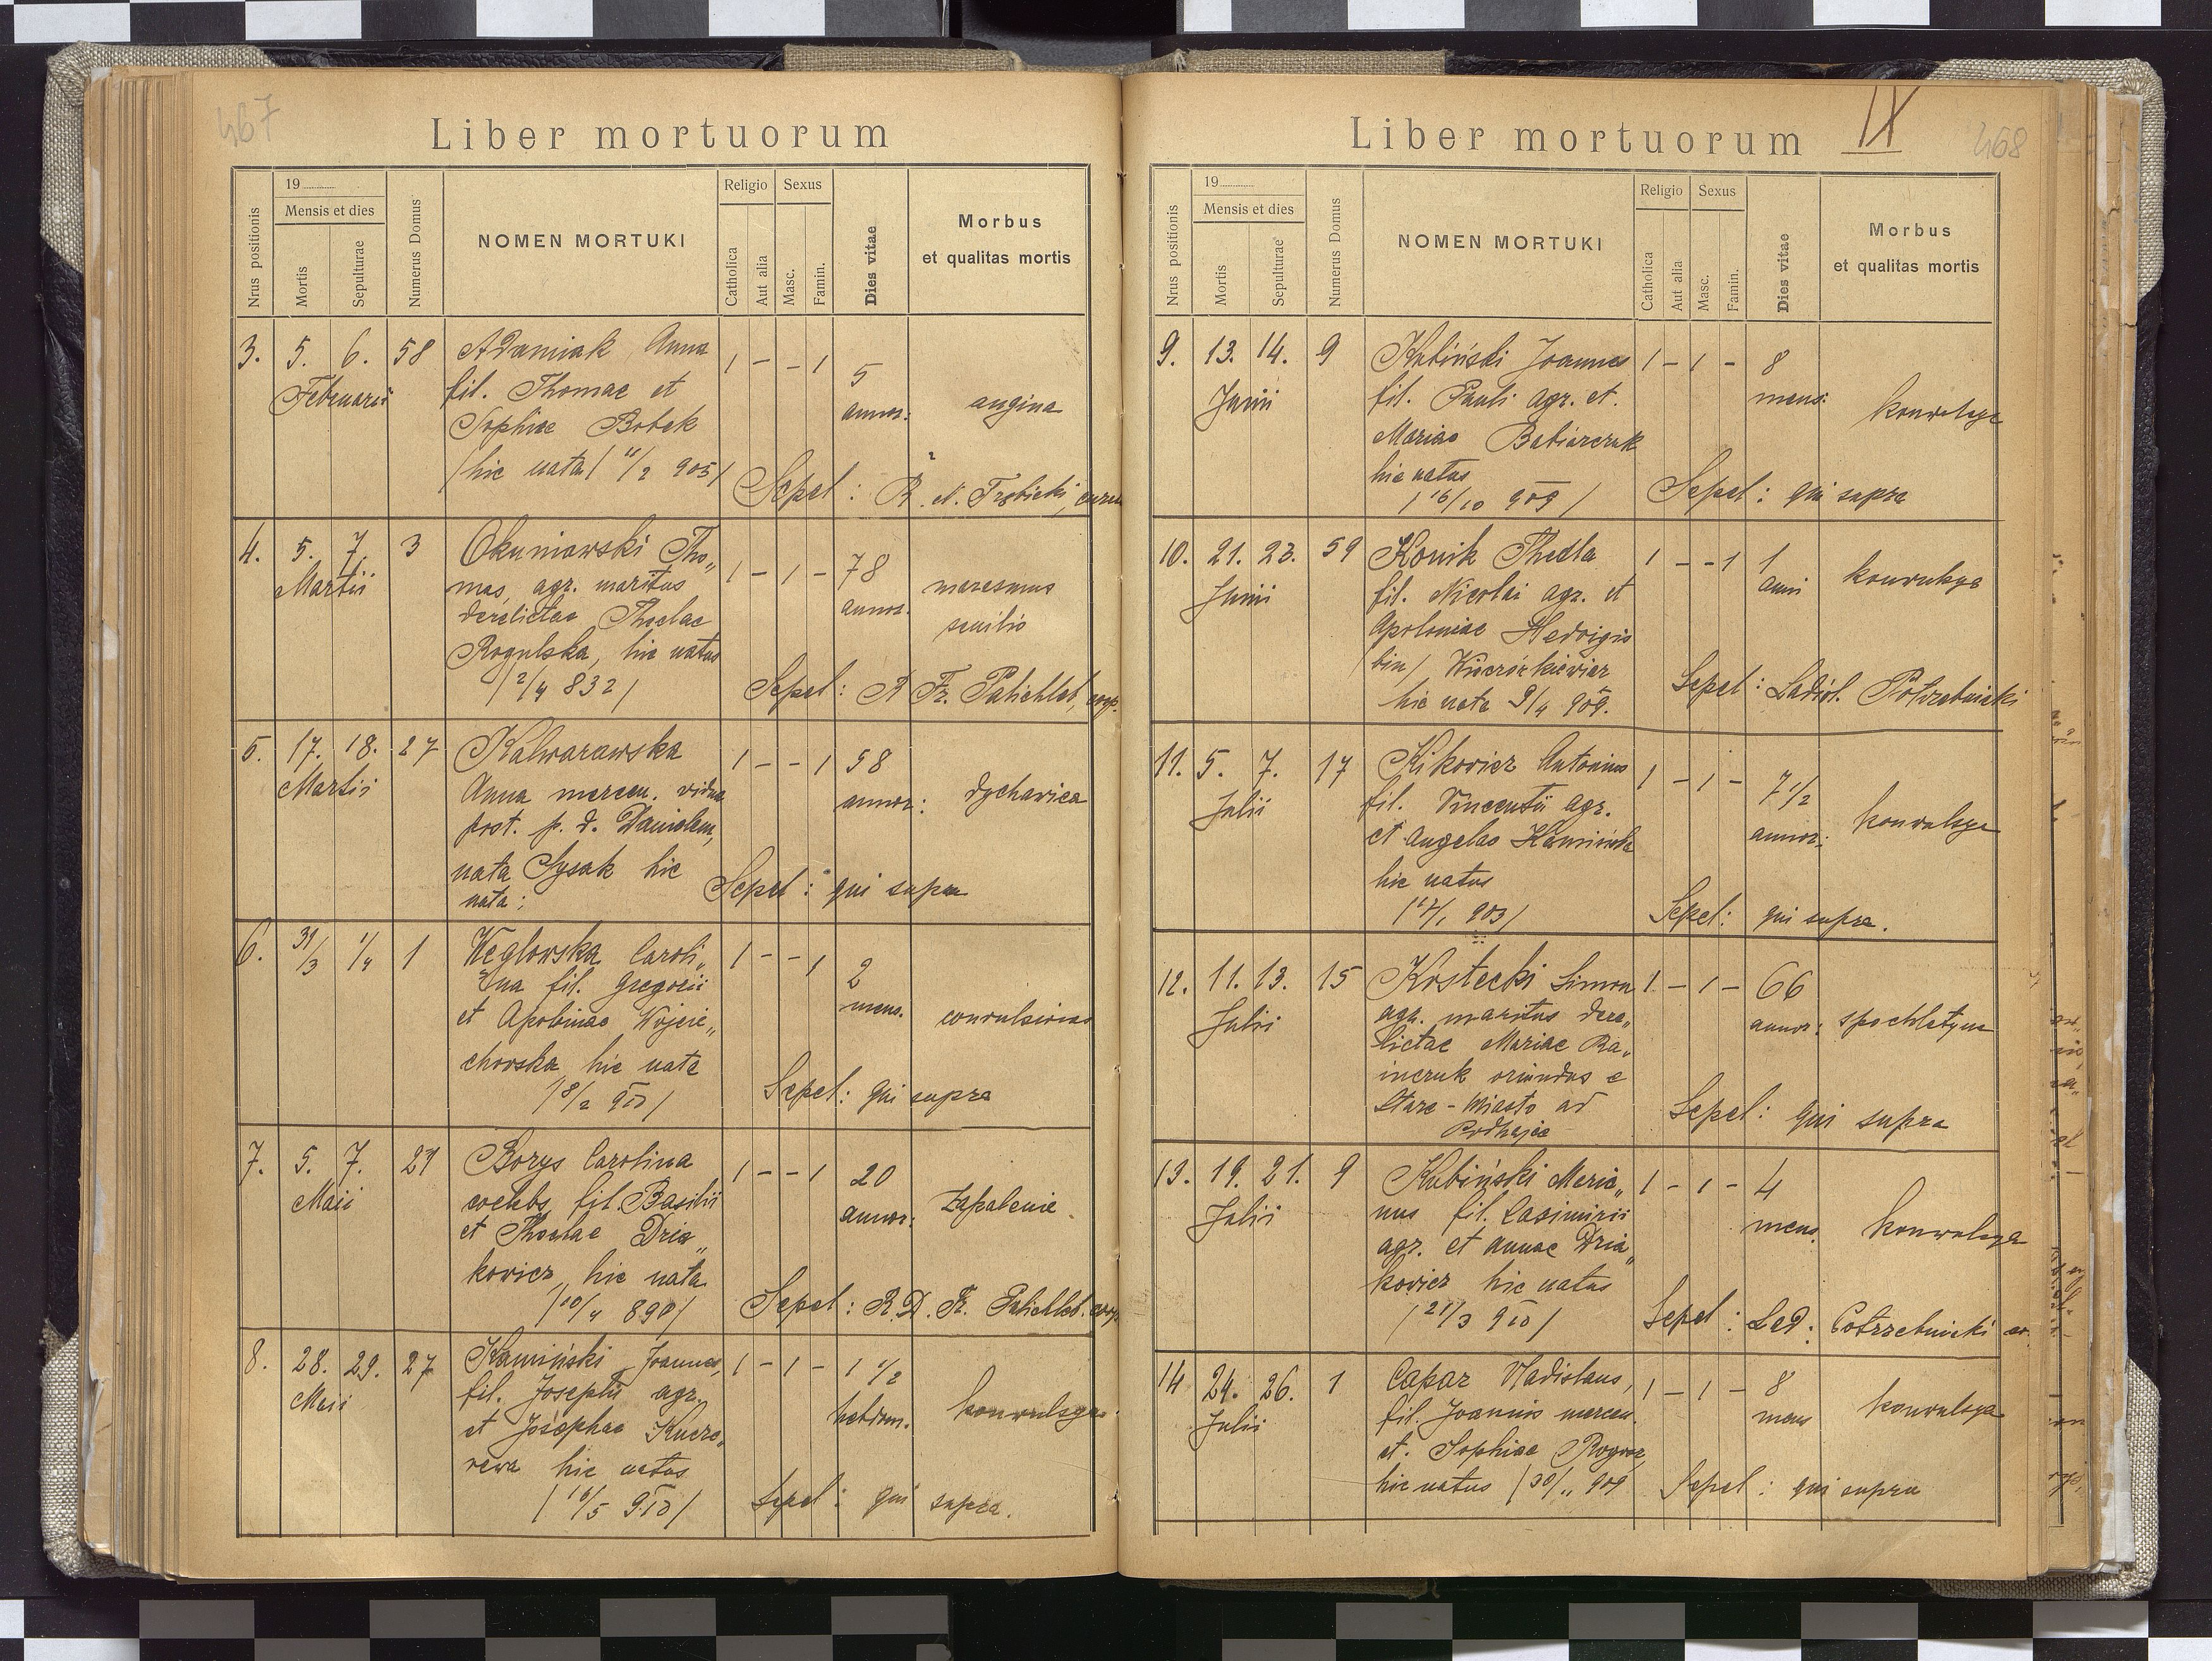 467
Liber mortuorum
Nrus positionis
19
Mensis et dies
Mortis
Sepulturae
Numerus Domus
NOMEN MORTUKI
Religio
Catholica
Aut alia
Sexus
Masc.
Famin.
Dies vitae
Morbus
et qualitas mortis
3. 5. 6. 58 Adamiak Anna 1 - - 1 5
Februarii fil. Thomae et annor: angina
Sophiae Bobak
/hic nata/ 11/2 905/
Sepel: R. N. Trobicki,
4. 5. 7. 3 Okuniawski Tho„ 1 - 1 - 78
Martii mas, agr. maritus annor. marasmus
derelictae Theclae senilis
Rogulska, hic natus
/2/4 832/
Sepel: R Fr. Patichleb, coop.
5. 17. 18. 27 Kalwarawska 1 - - 1 58
Martii Anna mercen. vidua annor: dychavica
post. p. d. Danielem,
nata Sysak hic
nata;
Sepel: qui supra
6. 31/3 1/4 1 Węglowska Caroli„ 1 - - 1 2
na fil. Gregorii mens. convulsiones
et Apoloniae Wojcie„
chovska hic nata
/8/2 910/
Sepel: qui supra
7. 5. 7. 21 Borys Carolina 1 - - 1 20
Maii coelebs fil. Basilii annor: zapalenie
et Theclae Dzia„
kovicz, hic nata
/10/4 890/
Sepel: R.D. Fr. Patichleb. coop.
8. 28. 29. 27 Kamiński Joannes, 1 - 1 - 1 1/2
Maii fil. Josephi agr. hebdom. konwulsya
et Josephae Kucze„
rawa hic natus
/16/5 910/
Sepel: qui supra.
IX
468
Liber mortuorum
Nrus positionis
19
Mensis et dies
Mortis
Sepulturae
Numerus Domus
NOMEN MORTUKI
Religio
Catholica
Aut alia
Sexus
Masc.
Famin.
Dies vitae
Morbus
et qualitas mortis
9. 13. 14. 9 Kubiński Joannes 1 - 1 - 8
Junii fil. Pauli agr. et. mens: konwulsya
Mariae Babiarczuk
hic natus
/16/10 909/
Sepel: qui supra
10. 21. 23. 59 Konik Thecla 1 - - 1 1
Junii fil. Nicolai agr. et anni konwulsya
Apoloniae Hedvigis
/bin/
hic nata 9/4 909.
Sepel: Ladisl. Potrzebnicki
11. 5. 7. 17 Kikovicz Antonius 1 - 1 - 7 1/2
Julii fil. Vincentii agr. annor: konwulsya
et Angelae Kamińska
hic natus
/17/1 903/
Sepel: qui supra.
12. 11. 13. 15 Kostecki Simon 1 - 1 - 66
Julii agr. maritus dere„ annor:
lictae Mariae Ra„
inczuk oriundus e
Stare-Miasto ad
Podhajce
Sepel: qui supra
13. 19. 21. 9 Kubiński Maria„ 1 - 1 - 4
Julii nus fil. Casimirii mens. konwulsya
agr. et Annae Dzia„
kovicz hic natus
/21/3 910/
Sepel: Lad. Potrzebnicki
14 24. 26. 1 Capar Vladislaus, 1 - 1 - 8
Julii fil. Joannis mercen. mens konwulsya
et. Sophiae
hic natus /30/11 909
Sepel: qui supra